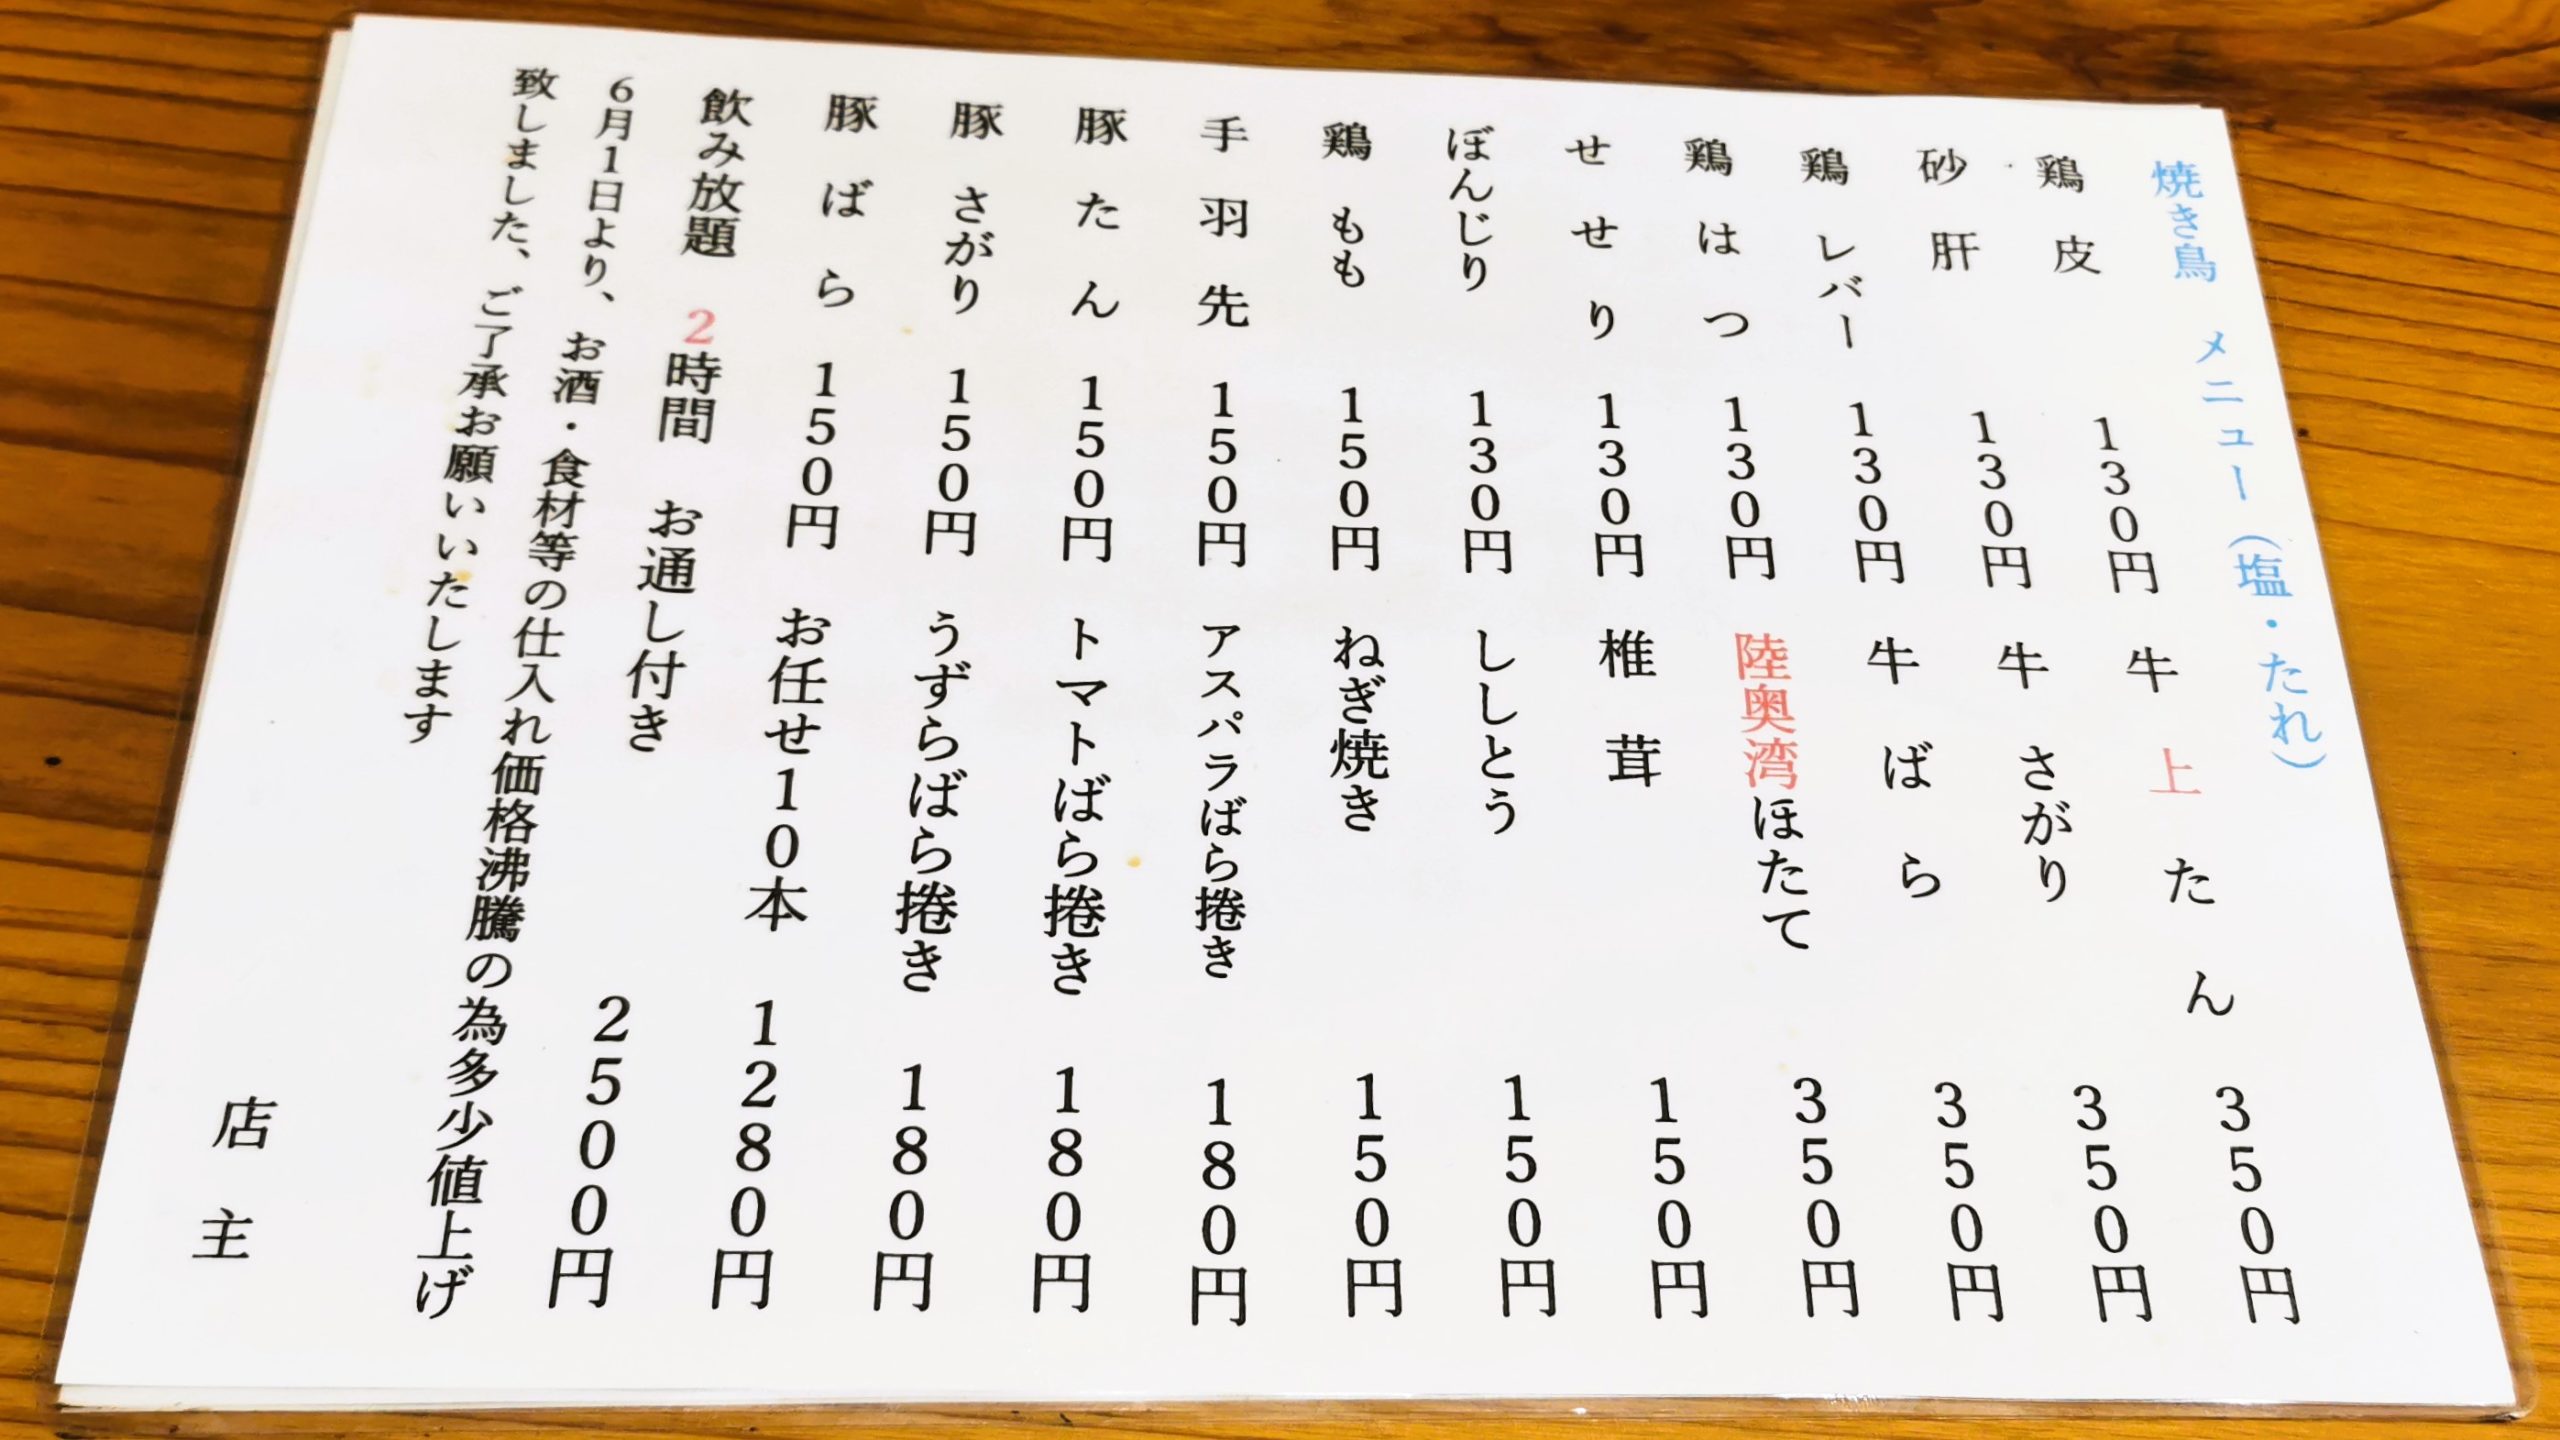 焼き鳥 メニュー（塩・たれ）
鶏皮 130円 牛上たん 350円
砂肝 130円 牛さがり 350円
鶏レバー 130円 牛ばら 350円
鶏はつ 130円 陸奥湾ほたて 350円
せせり 130円 椎茸 150円
ぼんじり 130円 ししとう 150円
鶏もも 150円 ねぎ焼き 150円
手羽先 150円 アスパラばら捲き 180円
豚たん 150円 トマトばら捲き 180円
豚さがり 150円 うずらばら捲き 180円
豚ばら 150円 お任せ10本 1280円
飲み放題 2時間 お通し付き 2500円
6月1日より、お酒・食材等の仕入れ価格沸騰の為多少値上げ
致しました、ご了承お願いいたします
店主